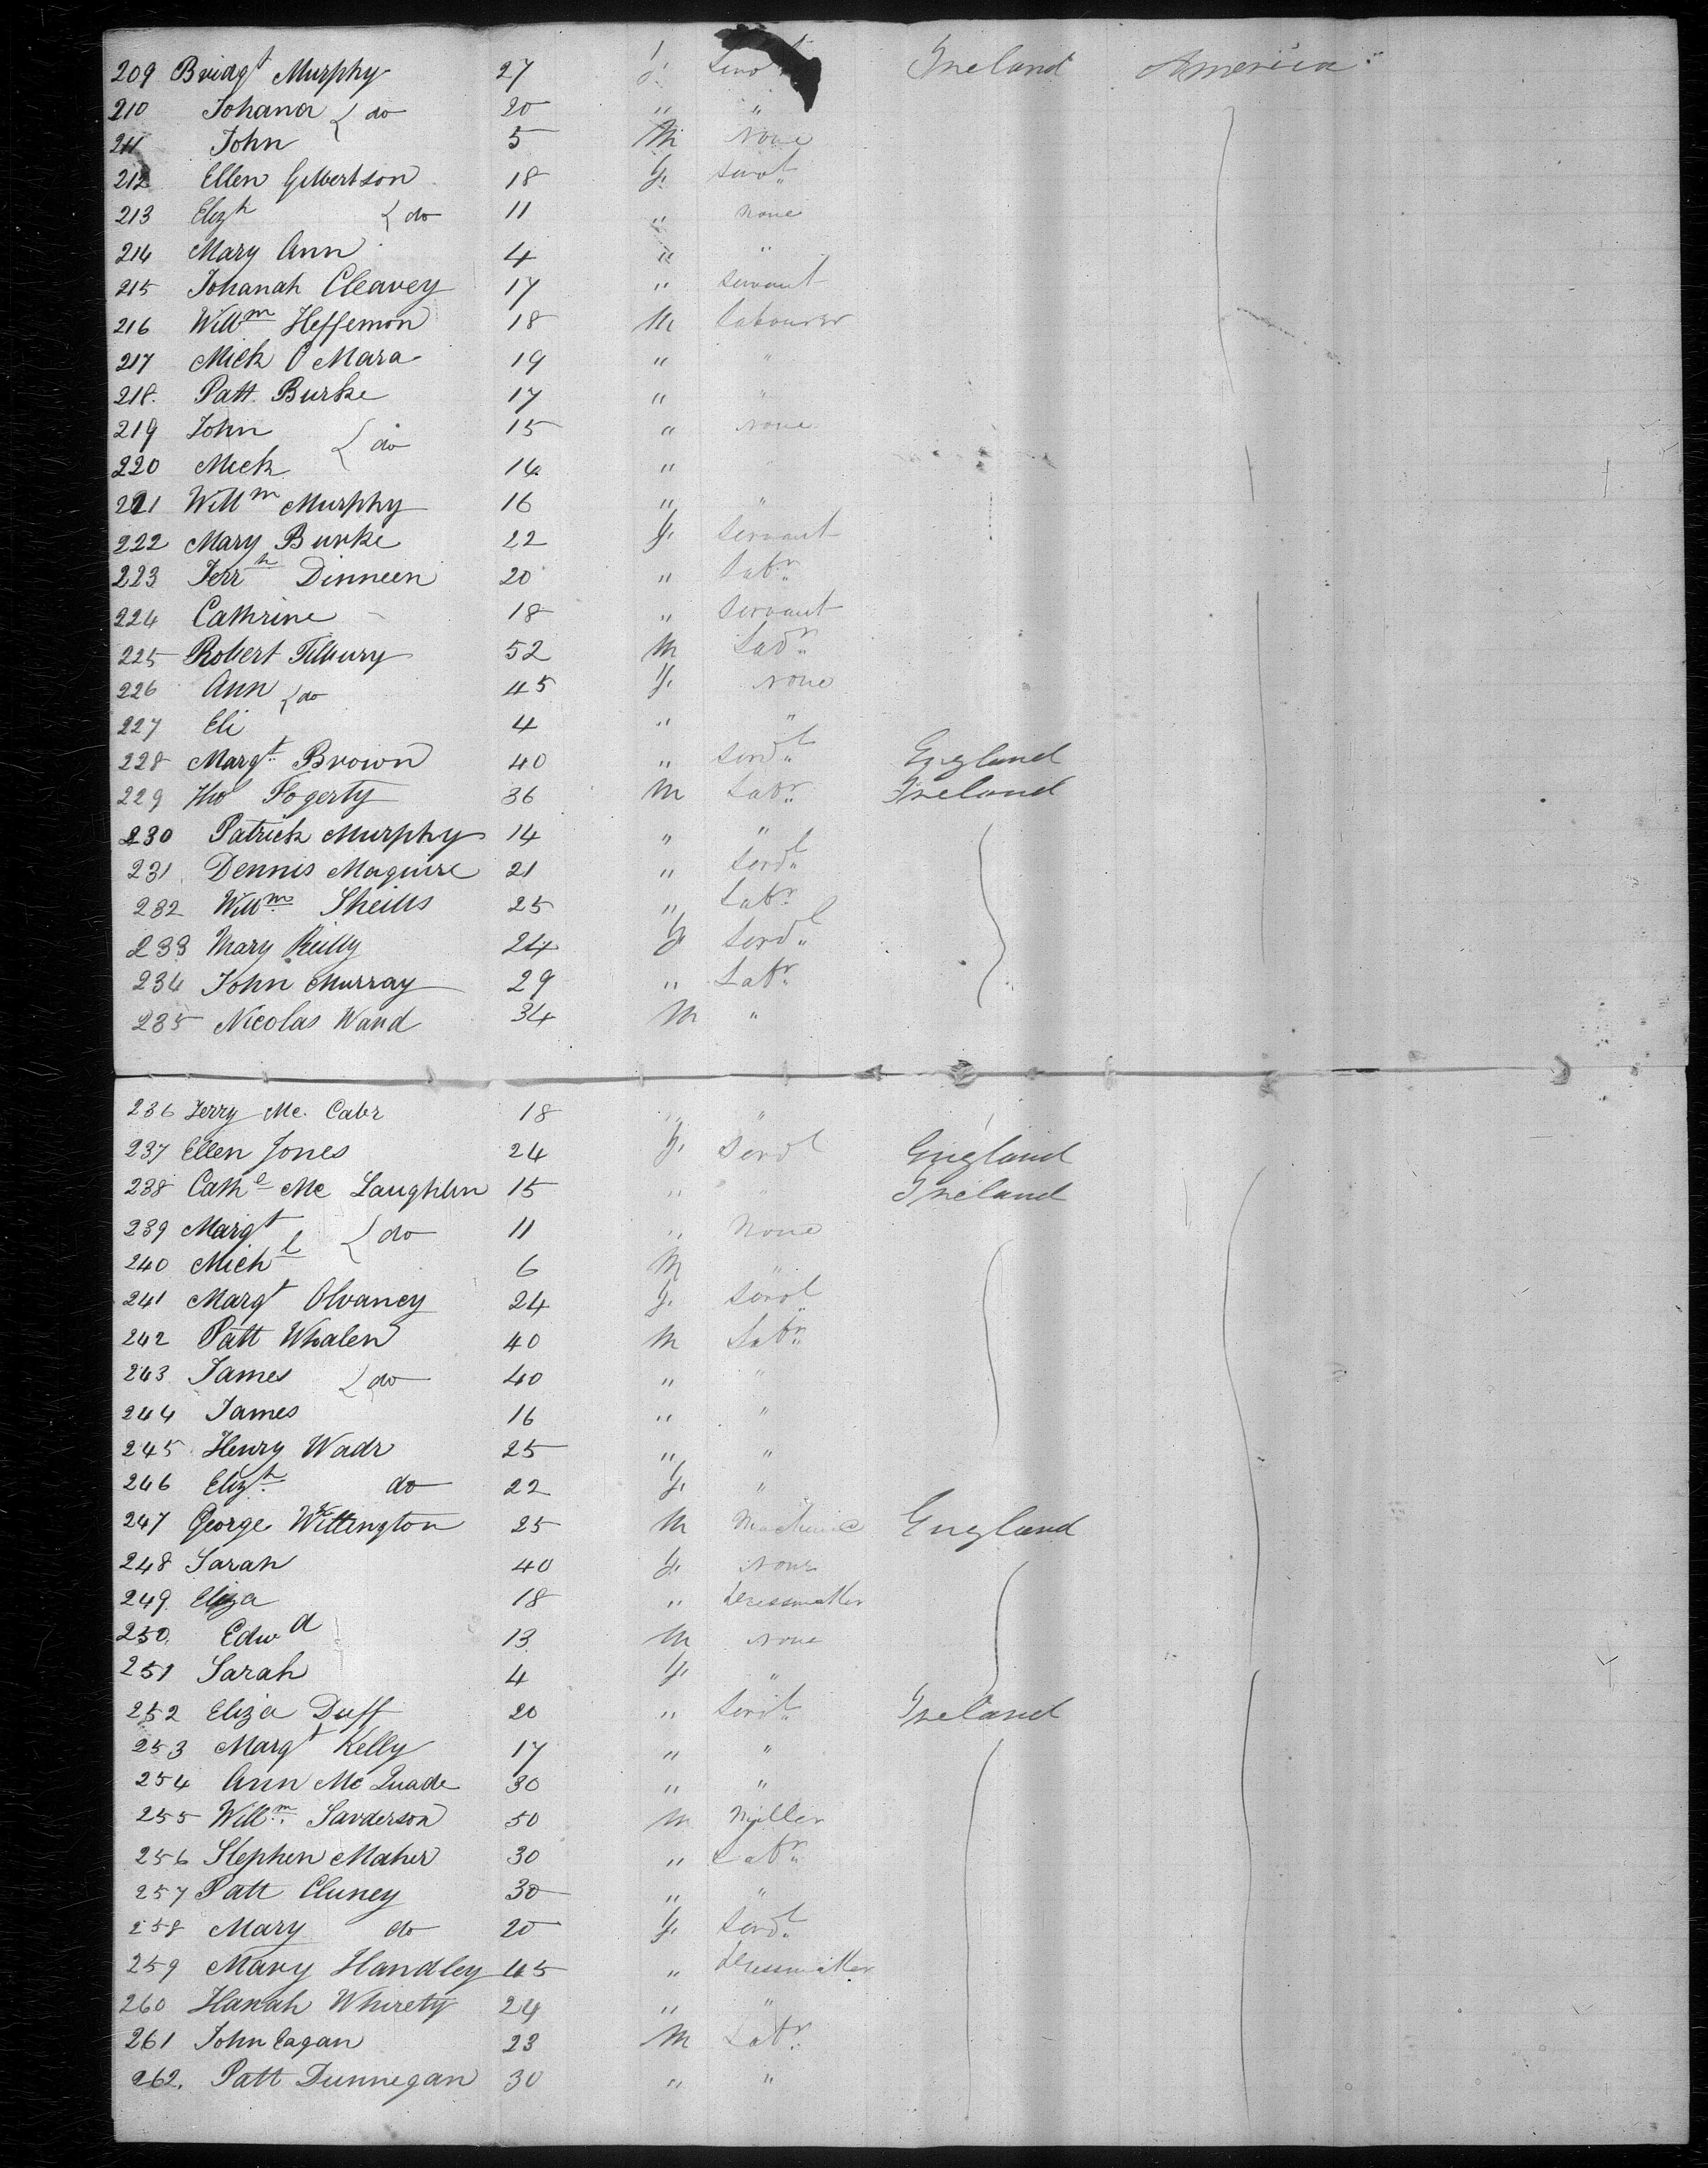 209 Bridgt Murphy 27 f. Servt Ireland America
210 Johana { do 20 " "
211 John 5 M None
212 Ellen Gilbertson 18 f. Servt
213 Elizh { do 11 " None
214 Mary Ann 4 " "
215 Johanah Cleavey 17 " Servant
216 Willm Heffernon 18 M Labourer
217 Mick O Mara 19 " "
218. Patt Burke 17 " "
219 John { do 15 " None
220 Mick 14 " "
221 Willm Murphy 16 " "
222 Mary Burke 22 f. Servant
223 Jerrh Dinneen 20 " Labr
224 Cathrine 18 " Servant
225 Robert Tilbury 52 M Labr
226 Ann { do 45 f. None
227 Eli 4 " "
228 Margt Brown 40 " Servt England
229 Tho Fogerty 36 M Labr Ireland
230 Patrick Murphy 14 " "
231 Dennis Maguire 21 " Servt
232 Willm Sheills 25 " Labr
233 Mary Reilly 24 f Servt
234 John Murray 29 " Labr
235 Nicolas Ward 34 M "
236 Jerry Mc. Cabe 18 " "
237 Ellen Jones 24 f. Servt England
238 Cathe Mc Laughlin 15 " " Ireland
239 Margt { do 11 " None
240 Michl 6 M "
241 Margt Olvaney 24 f. Servt
242 Patt Whalen 40 M Labr
243 James { do 40 " "
244 James 16 " "
245 Henry Wade 25 " "
246 Elizh do 22 f. "
247 George Wittington 25 M Mechanic England
248 Sarah 40 f. None
249 Eliza 18 " Dressmaker
250. Edwd 13 M None
251 Sarah 4 f. "
252 Eliza Duff 20 " Servt Ireland
253 Margt Kelly 17 " "
254 Ann Mc Quade 30 " "
255 Willm Sanderson 50 M Miller
256 Stephen Maher 30 " Labr
257 Patt Cluney 30 " "
258 Mary do 20 f. Servt
259 Mary Handley 45 " Dressmaker
260 Hanah Whirety 24 " "
261 John Eagan 23 M Labr
262. Patt Dunnegan 30 " "